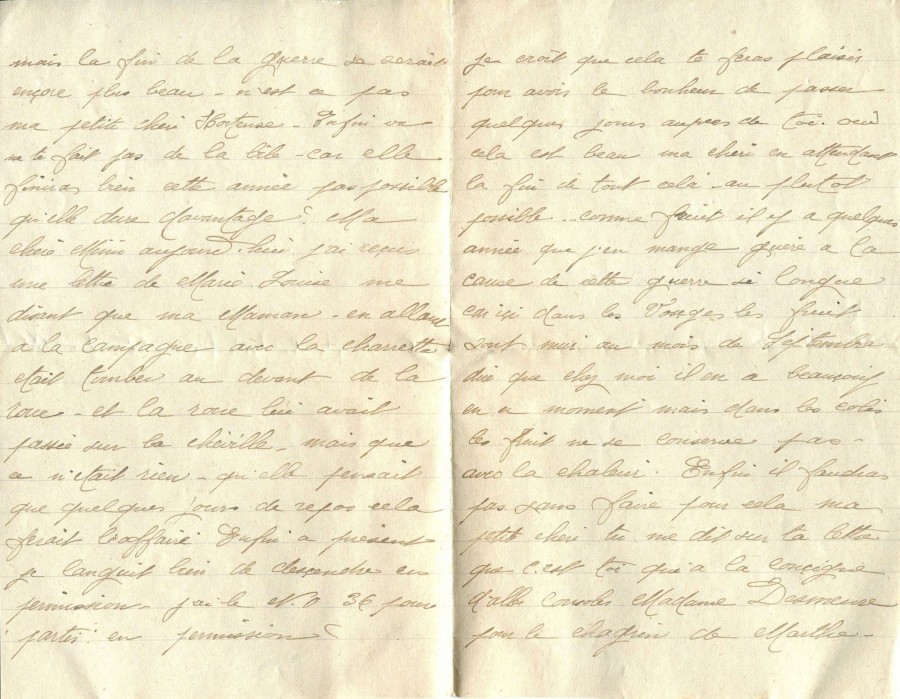 mais la fin de la guerre se serait
encore plus beau - n'est ce pas
ma petite cheri Hortense - Enfin va
ne te fait pas de la bile - car elle
finiras bien cette année pas possible
qu'elle dure davantage? Ma
cheri Mimi aujourd'hui j'ai reçus
une lettre de Marie-Louise me
disant que ma Maman - en allant
a la campagne avec la charrette
était tomber au devant de la
roue - et la roue lui avait
passée sur la cheville - mais que
ce n'était rien - qu'elle pensait
que quelques jours de repos cela
ferait l'affaire Enfin a présent
je languit bien de descendre en
permission - j'ai le N.o 36 pour
partir en permission
je croit que cela te feras plaisir
pour avoir le bonheur de passer
quelques jours auprès de toi. oui
cela est beau ma cheri en attendant
la fin de tout celà - au plutot
possible - comme fruit il y a quelques
année que j'en mange guère a la
cause de cette guerre si longue
car ici dans les Vosges les fruit
sont mur au mois de Septembre
dire que chez moi il en a beaucoup
en ce moment mais dans les colis
les fruit ne se conserve pas -
avec la chaleur. Enfin il faudras
pas s'en faire pour cela ma
petite cheri tu me dit sur ta lettre
que c'est toi qui a la consigne
d'aller consoler Madame
pour le chagrin de Marthe -